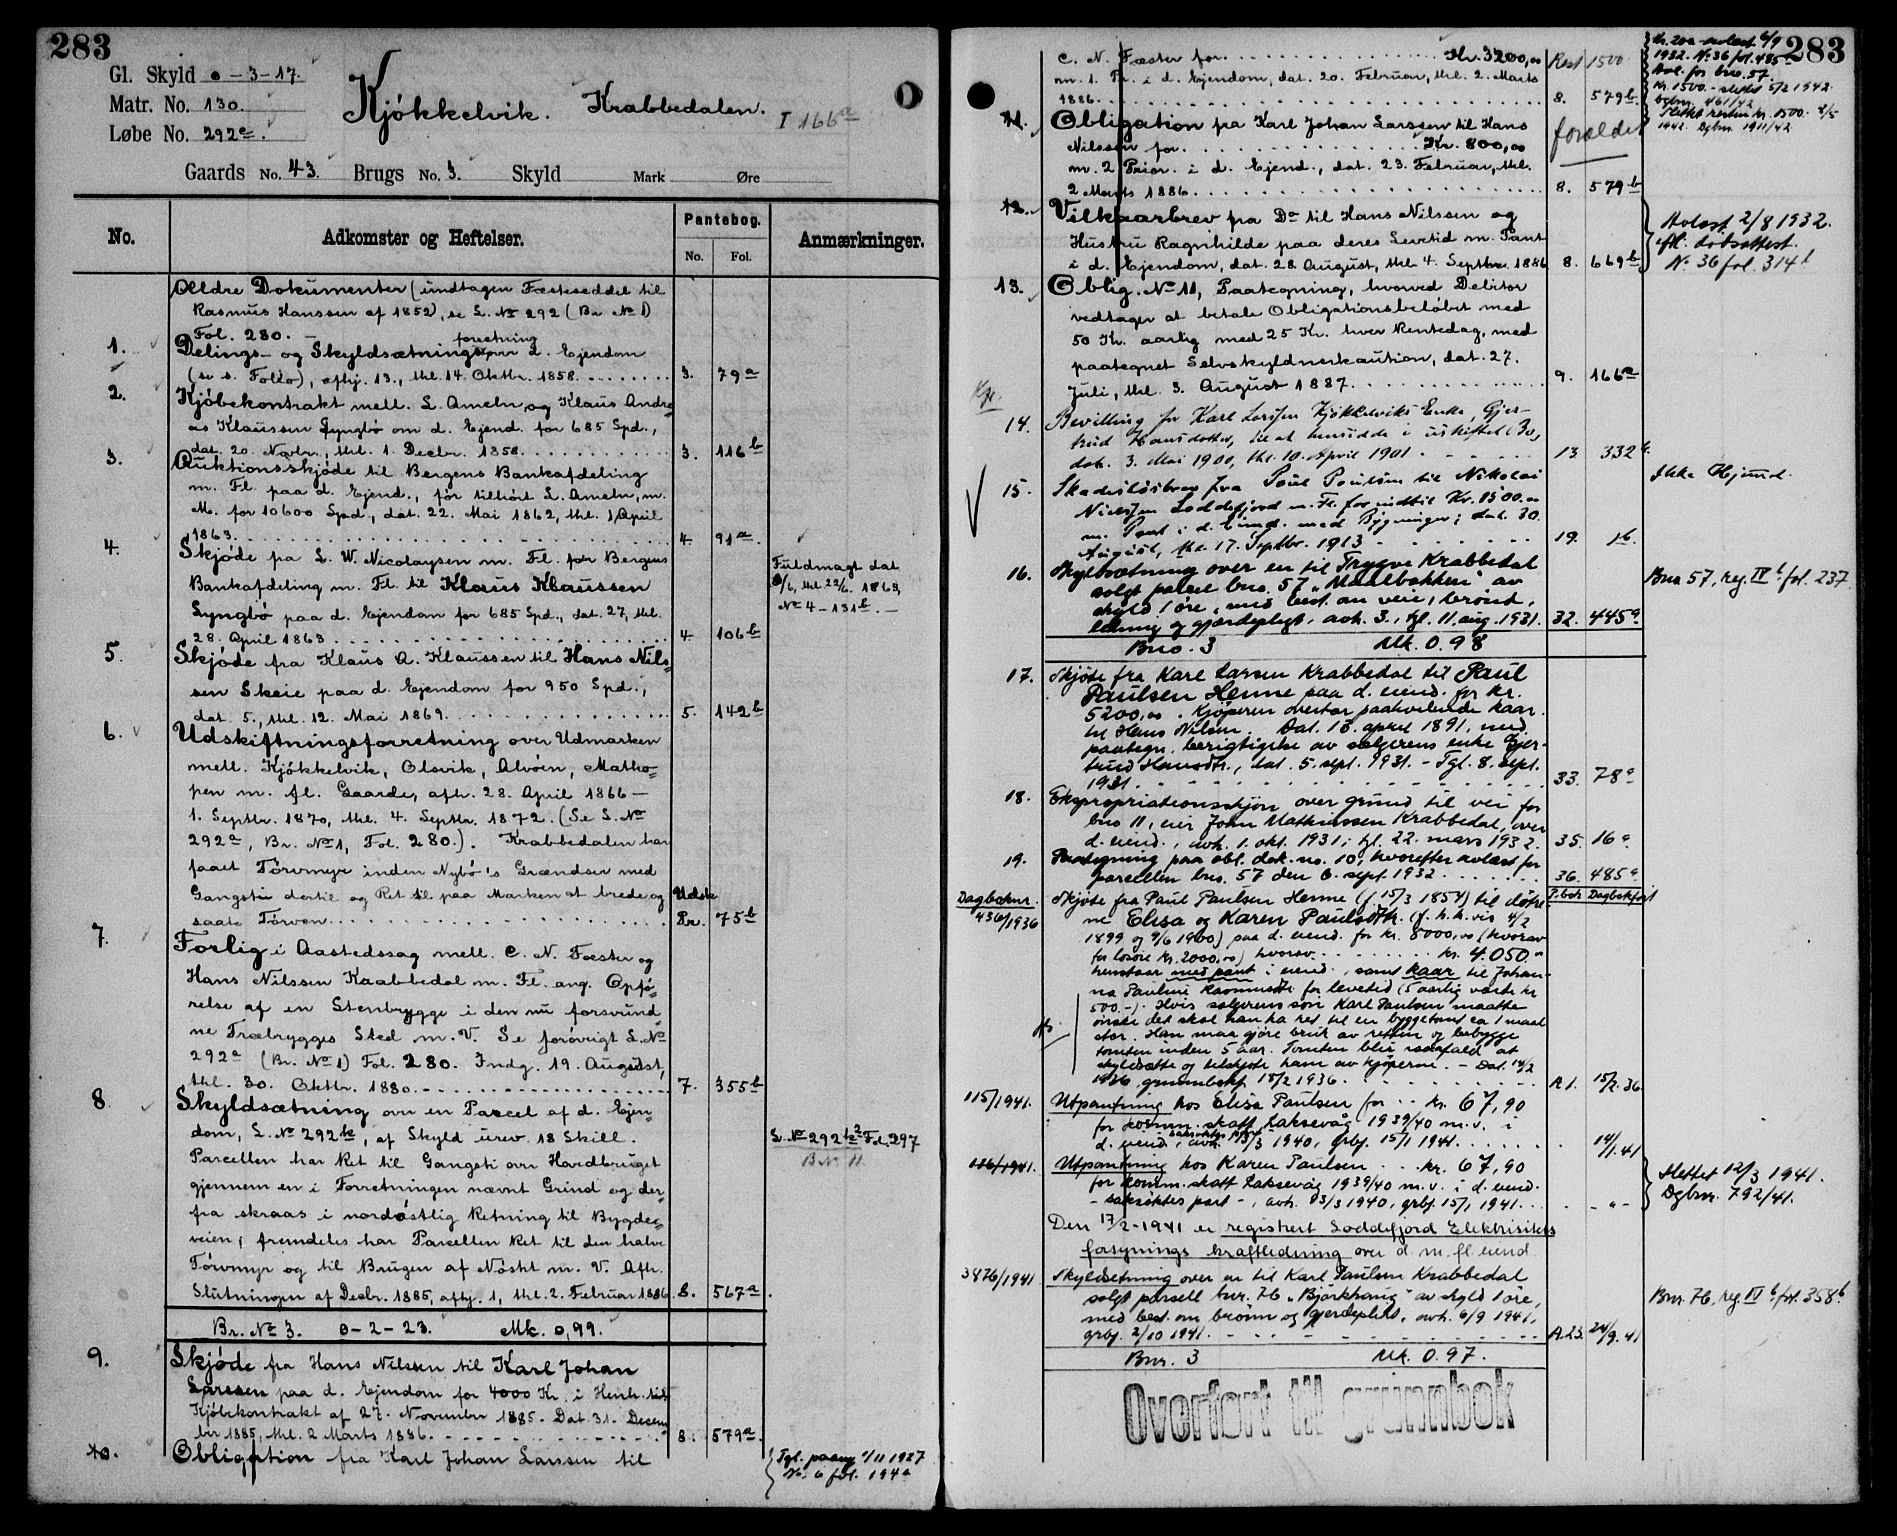 283
Gl. Skyld 0-3-17.
Matr. No. 130.
Løbe No. 292e.
Kjøkkelvik. Krabbedalen. I 166a
Gaards No. 43. Brugs No. 3. Skyld Mark Øre
No. Adkomster og Heftelser. Pantebog. No. Fol. Anmærkninger.
Ældre Dokumenter (undtagen Fæsteseddel til
Rasmus Hanssen af 1852), se L. No 292 (Br. No 1)
Fol. 280. —
1. Delings- og Skyldsætningsforretning over d. Ejendom
(se s. Folio), afhj. 13., thl. 14. Oktbr. 1858. 3. 79a
2. Kjøbekontrakt mell. L. Ameln og Klaus Andre
as Klaussen Lyngbø om d. Ejend. for 685 Spd.,
dat. 20. Novbr., thl. 1. Decbr. 1858. 3. 116b
3. Auktionsskjøde til Bergens Bankafdeling
m. Fl. paa d. Ejend., før tilhørt L. Ameln, m.
M. for 10600 Spd., dat. 22. Mai 1862, thl. 1 April
1863. 4. 91a
4. Skjøde fra L. W. Nicolaysen m. Fl. for Bergens
Bankafdeling m. Fl. til Klaus Klaussen
Lyngbø paa d. Ejendom for 685 Spd., dat. 27, thl.
28. April 1863. 4. 106b
Fuldmagt dat.
/6, thl. 22/6. 1863,
No 4 - 131b. —
5. Skjøde fra Klaus A. Klaussen til Hans Nils-
sen Skeie paa d. Ejendom for 950 Spd.,
dat. 5., thl. 12. Mai 1869. 5. 142b
6. Udskiftningsforretning over Udmarken
mell. Kjøkkelvik, Olsvik, Alvøen, Matho-
pen m. fl. Gaarde, afh. 28. April 1866 —
1. Septbr. 1870, thl. 4. Septbr. 1872. (Se L. No
292a, Br. No 1, Fol. 280.). Krabbedalen har
faaet Tørvmyr inden Nybø's Grændser med
Gangsti dertil og Ret til paa Marken at brede og
saate Tørven. Udsk. Br. 75b
7. Forlig i Aastedssag mell. C. N. Fæster og
Hans Nilssen Krabbedal m. Fl. ang. Opfø-
relse af en Stenbrygge i den nu forsvund-
ne Træbrygges Sted m. V. Se forøvrigt L. No
292a (Br. No 1) Fol. 280. Indg. 19. August,
thl. 30. Oktbr. 1880. 7. 355b
8. Skyldsætning over en Parcel af d. Ejen-
dom, L. No 292k, af Skyld urev. 18 Skill. L. No 292k2 Fol. 297
Parcellen har Ret til Gangsti over Hovedbruget Br. No 11.
gjennem en i Forretningen nævnt Grind og der-
fra skraas i nordøstlig Retning til Bygde-
veien; fremdeles har Parcellen Ret til den halve
Tørvmyr og til Brugen af Nøstet m. V. Afh.
Slutningen af Decbr. 1885, afhj. 1, thl. 2. Februar 1886. 8. 567a.
Br. No 3. 0-2-23. Mk. 0,99.
9. Skjøde fra Hans Nilssen til Karl Johan
Larssen paa d. Ejendom for 4000 Kr. i Henh. til
Kjøbekontrakt af 27. November 1885. Dat. 31. Decem
ber 1885, thl. 2 Marts 1886. 8. 579a.
10. Obligation fra Karl Johan Larssen til
Tgl. paateg 1/11 1927
No. 6 fol. 194a
283
C. N. Fæster for Kr. 3200,00 Rest 1500
m. 1. Pr. i d. Ejendom, dat. 20. Februar, thl. 2. Marts
1886. 8. 579b.
Kr. 200 avlæst 6/9
1932. No 36 fol. 485.
Avl. for bno. 57.
Kr. 1500.- slettet 5/2 1942.
Dgbnr. 461/42
Slettet resten kr. 1500. 4/5
1942. Dgbnr. 1911/42
11. Obligation fra Karl Johan Larssen til Hans foreldet
Nilssen for Kr. 800,00
m. 2 Prior. i d. Ejend., dat. 23. Februar, thl.
2 Marts 1886. 8. 579b
12. Vilkaarbrev fra Do til Hans Nilssen og
Hustru Ragnhilde paa deres Levetid m. Pant
i d. Ejendom, dat. 28. August, thl. 4. Septbr. 1886 8. 669b
Avlæst 2/8 1932.
ifl. dødsattest.
No. 36 fol. 314b
13. Oblig. No 11, Paategning, hvorved Debitor
vedtager at betale Obligationsbeløbet med
50 Kr. aarlig med 25 Kr. hver Rentedag, med
paategnet Selvskyldnerkaution, dat. 27.
Juli, thl. 3. August 1887. 9. 166a
14. Bevilling for Karl Larsen Kjøkkelviks Enke, Gjer-
trud Hansdatter, til at hensidde i uskiftet Bo,
dat. 3. Mai 1900, thl. 10. April 1901. 13. 332b.
15. Skadesløsbrev fra Poul Poulsen til Nikolai
Nielsen Loddefjord m. Fl. for indtil Kr. 1500.00
m. Pant i d. Eiend. med Bygninger, dat. 30.
August, thl. 17. Septbr. 1913. 19. 1b.
Ikke Hjemmel.
16. Skyldsætning over en til Trygve Krabbedal
solgt parsel bno. 57 "Maalbakken" av
skyld 1 øre, med best. om veie, brønd,
ledning og gjærdepligt, avh. 3., tgl. 11 aug. 1931. 32. 445a.
Bno 57, reg. IVb fol. 237
Bno. 3 Mk. 0.98
17. Skjøte fra Karl Larsen Krabbedal til Paul
Paulsen Henne paa d. eiend. for kr.
5200,00. Kjøperen overtar paahvilende kaar
til Hans Nilsen. Dat. 18. april 1891, med
paategn. berigtigelse av sælgerens enke Gjer-
trud Hansdtr., dat. 5. sept. 1931. - Tgl. 8. sept.
1931. 33. 78a
18. Ekspropriationsskjøn over grund til vei for
bno 11, eier John Mathiassen Krabbedal, over
d. eiend., avh. 1. okt. 1931, tgl. 22. mars 1932. 35. 16a
19. Paategning paa obl. dok. no. 10, hvorefter avlæst for
parcellen bno. 57 den 6. sept. 1932. 36. 485a.
Dagboknr. P.bok Dagbokført
436/1936 Skjøte fra Paul Paulsen Henne (f. 15/3 1857) til døtre
ne Elisa og Karen Paulsdtr. (f. h.h.vis 4/2
1899 og 9/6 1900) paa d. eiend. for kr. 8000,00 (hvorav
for løsøre kr. 2000,00) hvorav kr. 4.050.-
henstaar med pant i eiend., samt kaar til Johan-
na Pauline Rasmusdtr for levetid (5 aarlig værdi kr
500.-). Hvis sælgerens søn Karl Paulsen maatte
ønske det skal han ha ret til en byggetomt ca 1 maal
stor. Han maa gjøre bruk av retten og bebygge
tomten inden 5 aar. Tomten blir isaafald at
skyldsætte og tilskjøte ham av kjøperne. - Dat. 14/2
1936, grunnbokf. 18/2 1936. A 1. 15/2 36
115/1941. Utpantning hos Elisa Paulsen for kr. 67,90
for komm. skatt Laksevåg 1939/40 m. v. i
d. eiend. saksøktes part, avh. 13/3 1940, grbf. 15/1 1941. 14/1.41
116/1941. Utpantning hos Karen Paulsen kr. 67,90
for komm. skatt Laksevåg 1939/40 m.v. i d. eiend.
- saksøktes part -, avh. 13/3 1940, grbf. 15/1 1941. - " -
Slettet 12/3 1941.
Dgbnr. 792/41.
Den 17/2-1941 er registrert Loddefjord Elektrisitets
forsynings kraftledning over d. m. fl. eiend
3876/1941 Skyldsetning over en til Karl Paulsen Krabbedal
solgt parsell bnr. 76 "Bjørkhaug" av skyld 1 øre,
med best. om brønn og gjerdeplikt, avh. 6/9 1941,
grbf. 2/10 1941. A 23. 24/9.41
Bnr. 76, reg. IVb fol. 358b
Bnr. 3 Mk. 0.97.
Overført til grunnbok